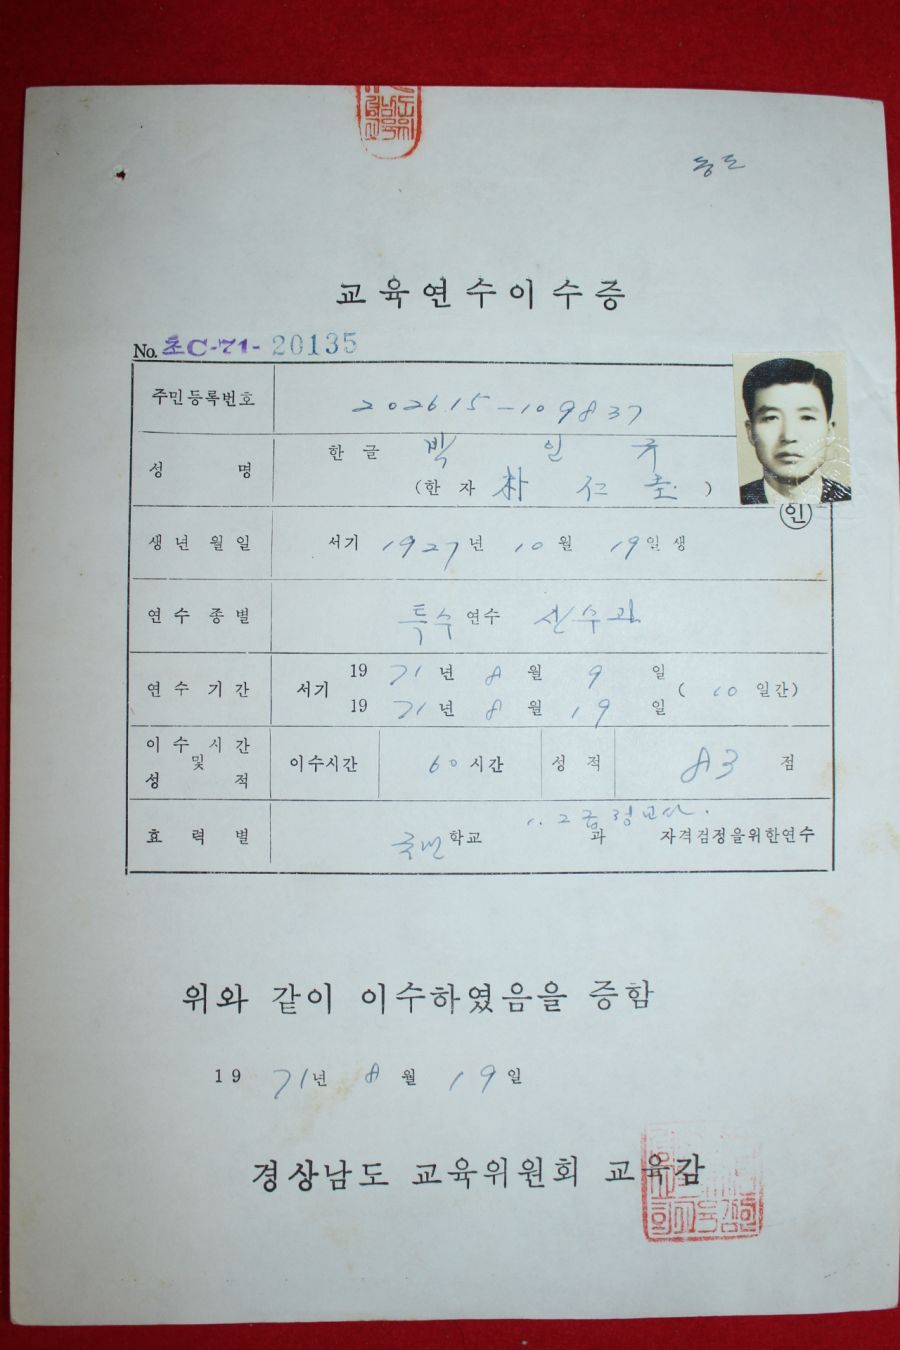 교육연수이수증
No. 초C-71- 20135
주민등록번호 202615-109837
성 명 한글 박 인 규
(한자 朴 仁 圭)
인
생년월일 서기 1927년 10월 19일생
연수종별 특수 연수
연수기간 서기 1971년 8월 9일
1971년 8월 19일 (10일간)
이수시간 및 성적 이수시간 60시간 성적 83점
효력별 국민학교 과 자격검정을위한연수
위와 같이 이수하였음을 증함
1971년 8월 19일
경상남도 교육위원회 교육감